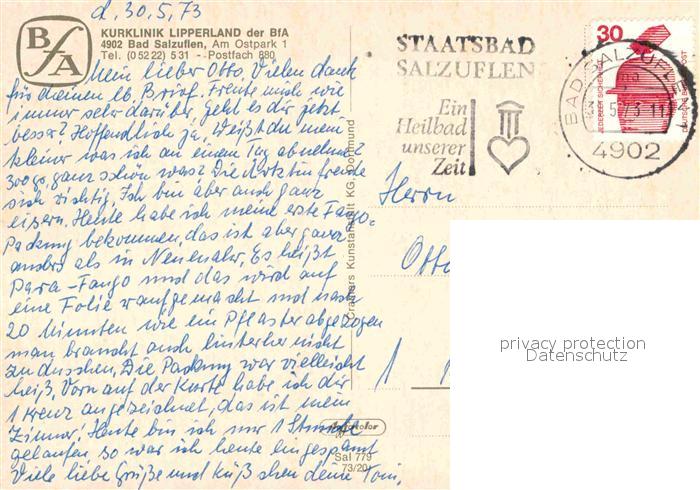 d. 30.5.73
BfA
KURKLINIK LIPPERLAND der BfA
4902 Bad Salzuflen, Am Ostpark 1
Tel. (05222) 531 - Postfach 880
Mein lieber Otto, Vielen dank
für deinen lb. Brief. Freute mich wie
immer sehr darüber, geht es dir jetzt
besser? Hoffendlich ja, Weißt du mein
kleiner was ich an einem Tag abnehme?
300 g, ganz schön was? Die Ärztin freute
sich richtig, Ich bin aber auch ganz
eisern. Heute habe ich meine erste Fango-
Packung bekommen, das ist aber ganz
anders als in Neuenahr, Es heißt
Para-Fango und das wird auf
eine Folie raufgemacht und nach
20 Minuten wie ein Pflaster abgezogen
man braucht auch hinterher nicht
zu duschen, Die Packung war vielleicht
heiß, Vorn auf der Karte habe ich dir
1 Kreuz angezeichnet, das ist mein
Zimmer! Heute bin ich nur 1 Stunde
gelaufen so war ich heute eingespannt
Viele liebe Grüße und Küßchen deine Toni.
Cramers Kunstanstalt KG, Dortmund
Sal 779
73/20
STAATSBAD
SALZUFLEN
Ein
Heilbad
unserer
Zeit
BAD SALZUFLEN
4902
30
JEDERZEIT SICHERHEIT
DEUTSCHE BUNDESPOST
Herrn
Otto
1
privacy protection
Datenschutz